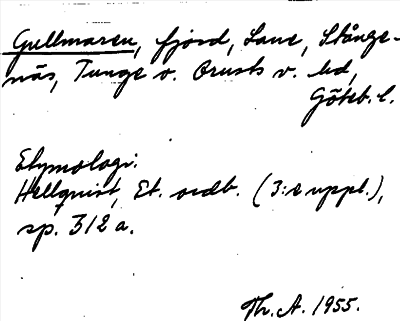 Gullmaren, fjord, Lane, Stånge-
näs, Tunge o. Orusts v. hd,
Göteb. l.
Etymologi:
Hellquist, Et. ordb. (3:e uppl.),
sp. 312 a.
Th. A. 1955.